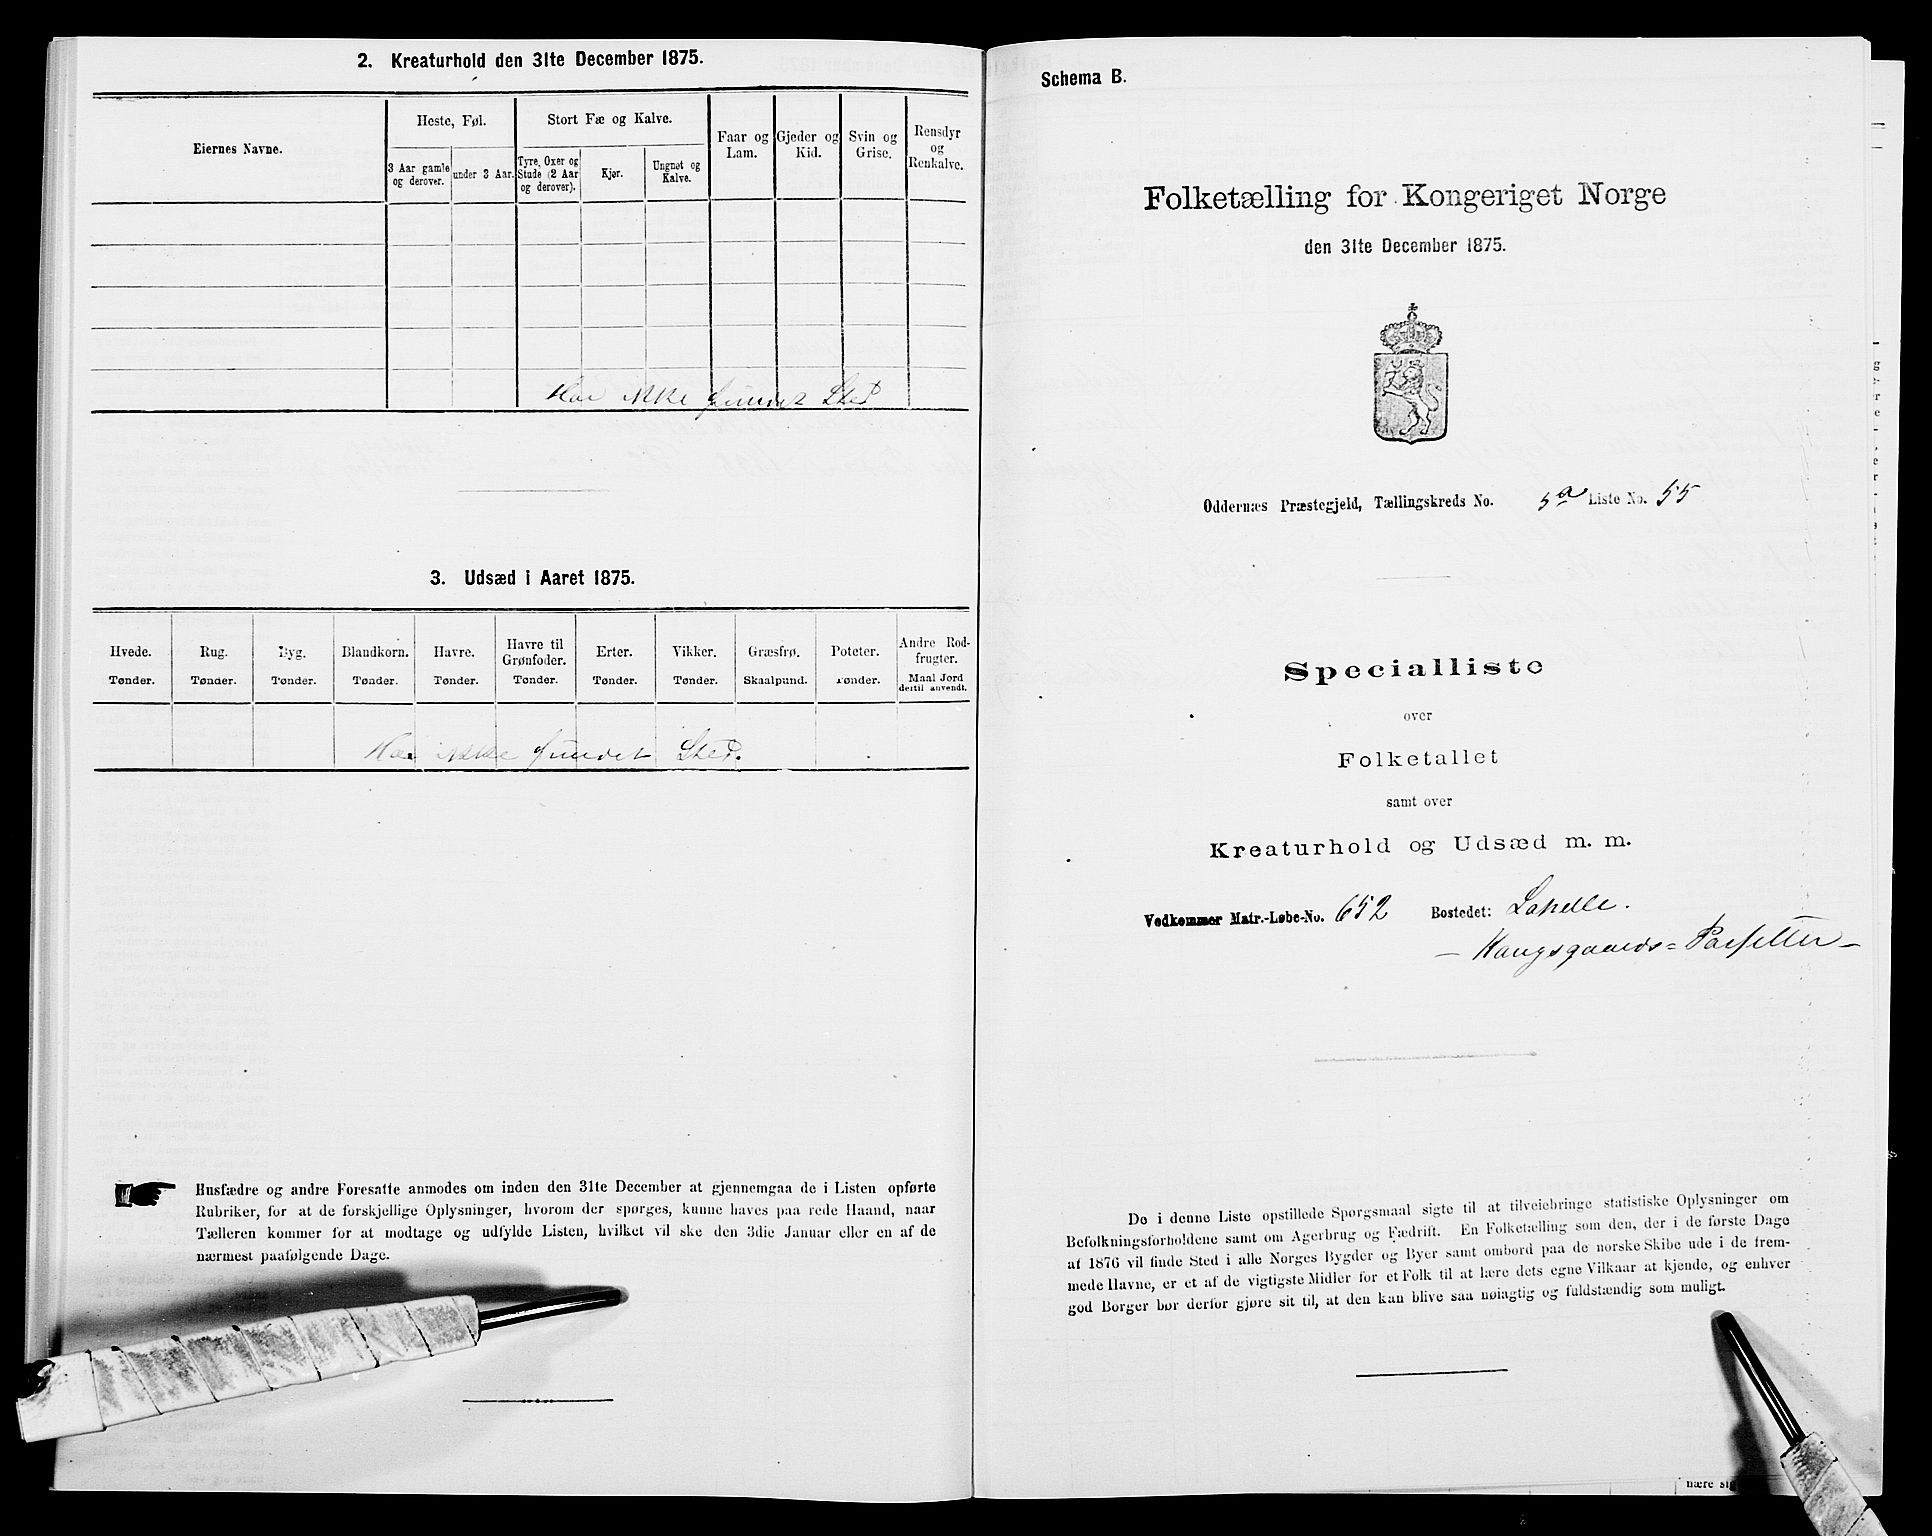 2. Kreaturhold den 31te December 1875.
Eiernes Navne.
Heste, Føl.
Stort Fæ og Kalve.
Faar og Lam.
Gjeder og Kid.
Svin og Grise.
Rensdyr og Renkalve.
3 Aar gamle og derover.
under 3 Aar.
Tyre, Oxer og Stude (2 Aar og derover).
Kjør.
Ungnøt og Kalve.
Har ikke fundet Sted
3. Udsæd i Aaret 1875.
Hvede. Tønder.
Rug. Tønder.
Byg. Tønder.
Blandkorn. Tønder.
Havre. Tønder.
Havre til Grønfoder. Tønder.
Erter. Tønder.
Vikker. Tønder.
Græsfrø. Skaalpund.
Poteter. Tønder.
Andre Rodfrugter. Maal Jord dertil anvendt.
Har ikke fundet Sted.
Husfædre og andre Foresatte anmodes om inden den 31te December at gjennemgaa de i Listen opførte
Rubriker, for at de forskjellige Oplysninger, hvorom der spørges, kunne haves paa rede Haand, naar
Tælleren kommer for at modtage og udfylde Listen, hvilket vil ske den 3die Januar eller en af de
nærmest paafølgende Dage.
Schema B.
Folketælling for Kongeriget Norge
den 31te December 1875.
Oddernæs Præstegjeld, Tællingskreds No. 5a Liste No. 55
Specialliste
over
Folketallet
samt over
Kreaturhold og Udsæd m. m.
Vedkommer Matr.-Løbe-No. 652 Bostedet: Lahelle.
— Kongsgaards= —
De i denne Liste opstillede Spørgsmaal sigte til at tilveiebringe statistiske Oplysninger om
Befolkningsforholdene samt om Agerbrug og Fædrift. En Folketælling som den, der i de første Dage
af 1876 vil finde Sted i alle Norges Bygder og Byer samt ombord paa de norske Skibe ude i de frem-
mede Havne, er et af de vigtigste Midler for et Folk til at lære dets egne Vilkaar at kjende, og enhver
god Borger bør derfor gjøre sit til, at den kan blive saa nøiagtig og fuldstændig som muligt.
nære sig